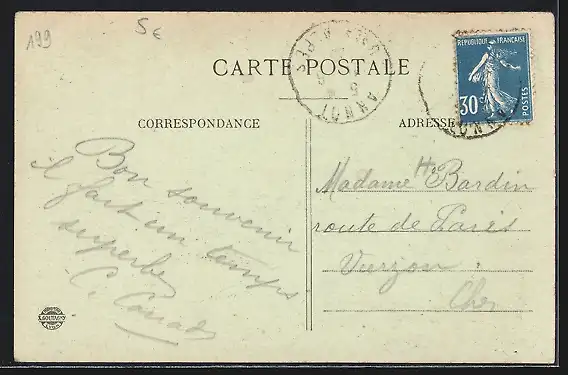 199
5€
CARTE POSTALE
REPUBLIQUE FRANÇAISE
30c
POSTES
CORRESPONDANCE
ADRESSE
Bon souvenir
il fait un temps
superbe
C. Conrad
Madame H. Bardin
route de Paris
Vierzon
Cher
LYON